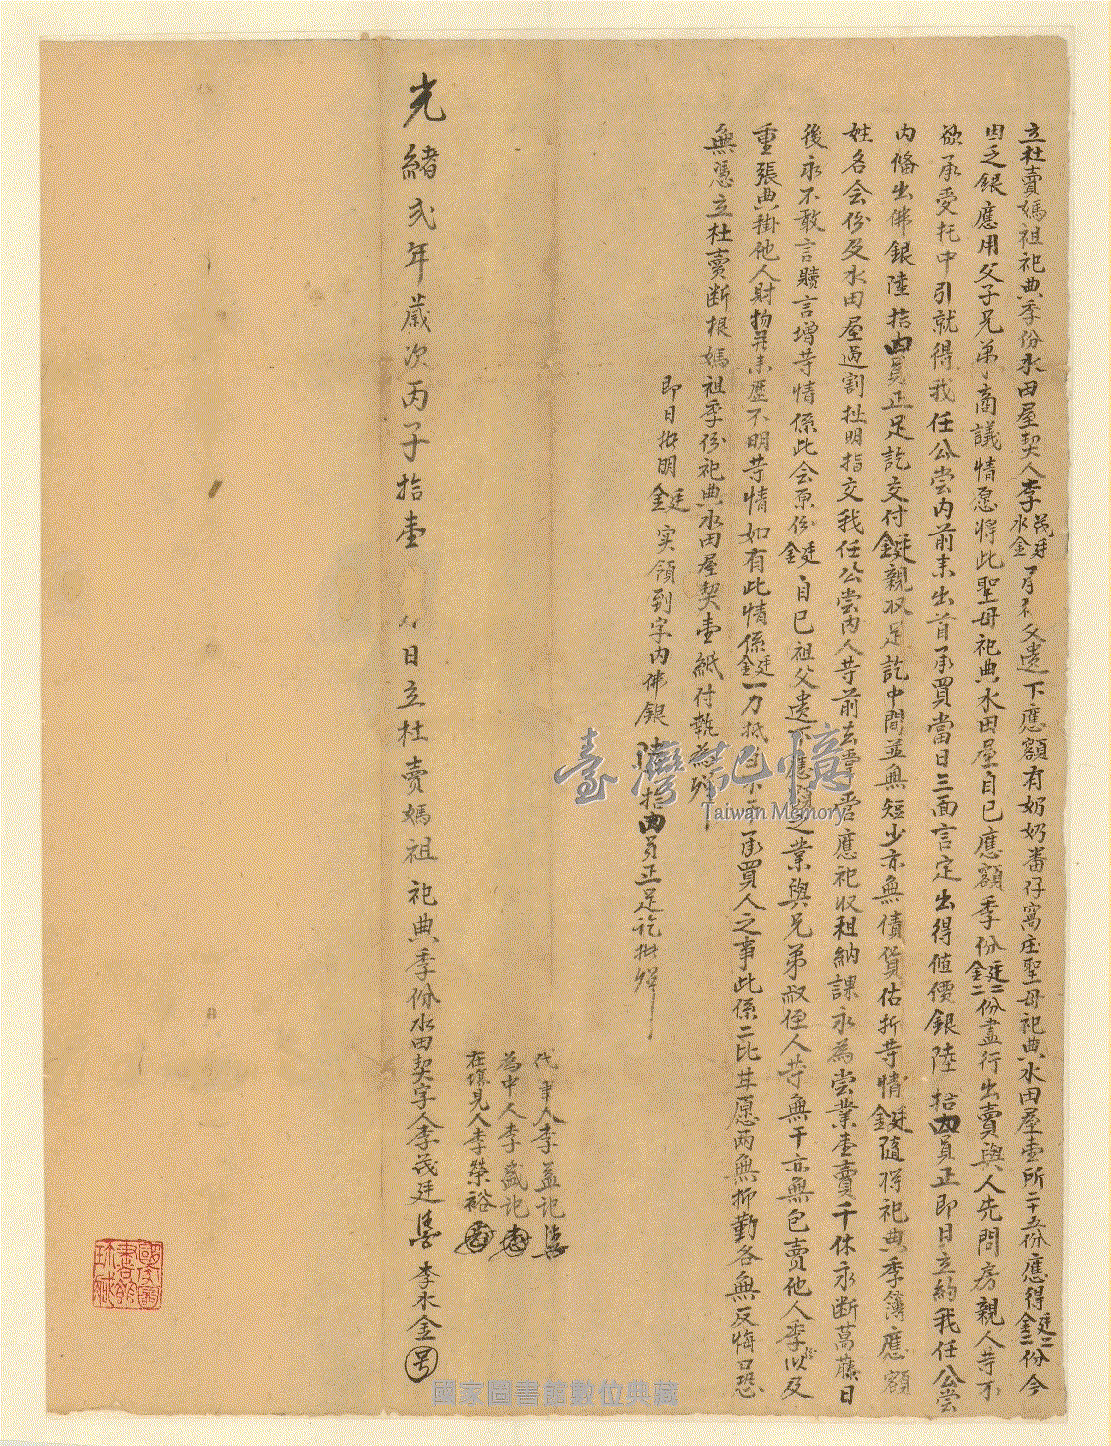 立杜賣媽祖祀典季份水田屋契人李茂廷水金有祖父遺下應額有奶奶番仔窩庄聖母祀典水田屋壹所二十五份應得廷金二份今
因乏銀應用父子兄弟商議情愿將此聖母祀典水田屋自已應額季份廷金二份盡行出賣與人先問房親人等不
欲承受托中引就得我任公嘗內前來出首承買當日三面言定出得値價銀陸拾內員正即日立約我任公嘗
內備出佛銀陸拾內員正足訖交付廷金親收足訖中間並無短少亦無債貨估折等情廷金隨得祀典季簿應額
姓各会份及水田屋過割扯明指交我任公嘗內人等前去掌管應祀收租納課永為嘗業壹賣千休永断萬藤日
後永不敢言贖言增等情係此会原份廷金自已祖父遺下應額之業與兄弟叔侄人等無干亦無包賣他人季以及
重張典掛他人財物并來歷不明等情如有此情係廷金一力抵當不干承買人之事此係二比甘愿兩無抑勒各無反悔口恐
無憑立杜賣断根媽祖季份祀典水田屋契壹紙付執為炤
即日批明廷金实領到字內佛銀陸拾內員正足訖批炤
代筆人李益記
為中人李盛記
在塲見人李榮裕
光緒弍年歲次丙子拾壹月日立杜賣媽祖祀典季份水田契字人李茂廷 李水金
臺灣記憶
Taiwan Memory
國家圖書館數位典藏